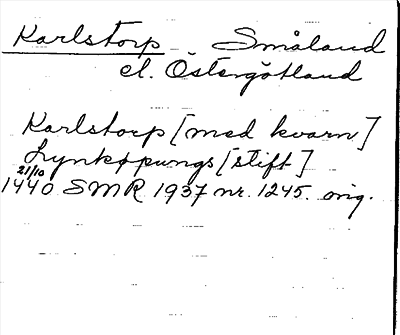 Karlstorp - Småland
el. Östergötland
Karlstorp [med kvarn]
Lynkøpungs [stift]
21/10
1440 SMR 1937 nr. 1245. orig.